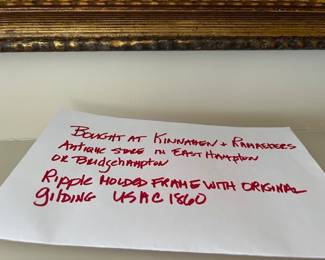 BOUGHT AT KINNAMEN + RAMAEKERS
ANTIQUE STORE IN EAST HAMPTON
OR BRIDGEHAMPTON
RIPPLE MOLDED FRAME WITH ORIGINAL
GILDING USA C 1860